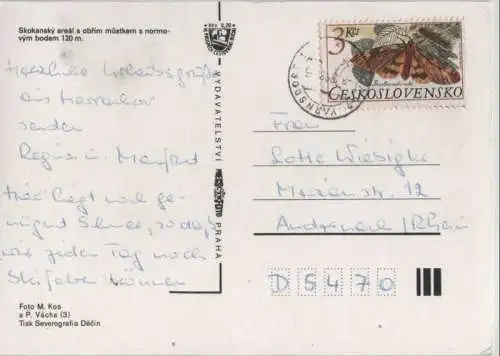 Skokanský areál s obřím můstkem s normo-
vým bodem 120 m.
Herzliche Urlaubsgrüße
aus Harrachov
senden
Regina u. Manfred
Hier liegt noch ge-
nügend Schnee, so daß
wir jeden Tag noch
Skifahren können
Foto M. Kos
a P. Vácha (3)
Tisk Severografia Děčín
VYDAVATELSTVÍ
PRAHA
3 Kčs
ČESKOSLOVENSKO
Frau
Lotte
12
Andernach / Rhein
D 5 4 7 0